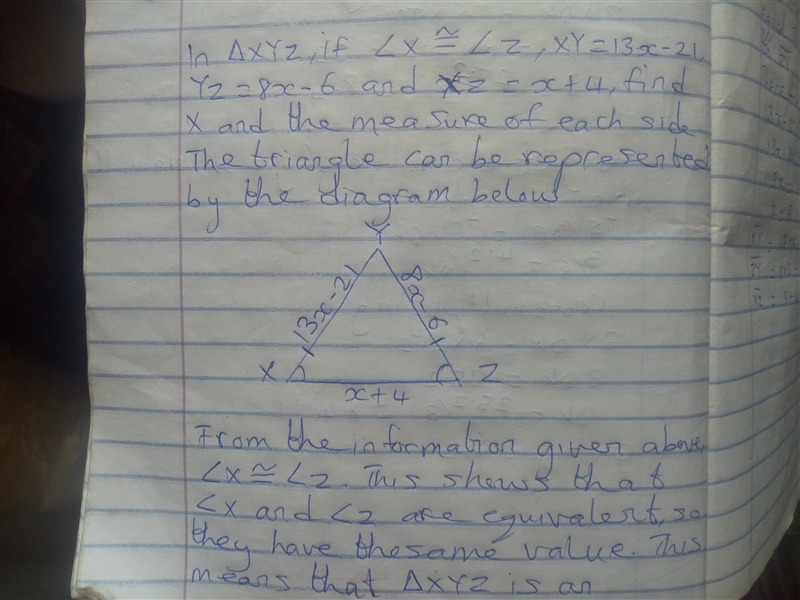 In ΔXYZ, if ∠X ≅ ∠Z, XY=13x-21,
YZ=8x-6 and XZ = x+4, find
X and the measure of each side
The triangle can be represented
by the diagram below
Y
13x-21
8x-6
X
Z
x+4
From the information given above,
∠X ≅ ∠Z. This shows that
∠X and ∠Z are equivalent, so
they have the same value. This
means that ΔXYZ is an